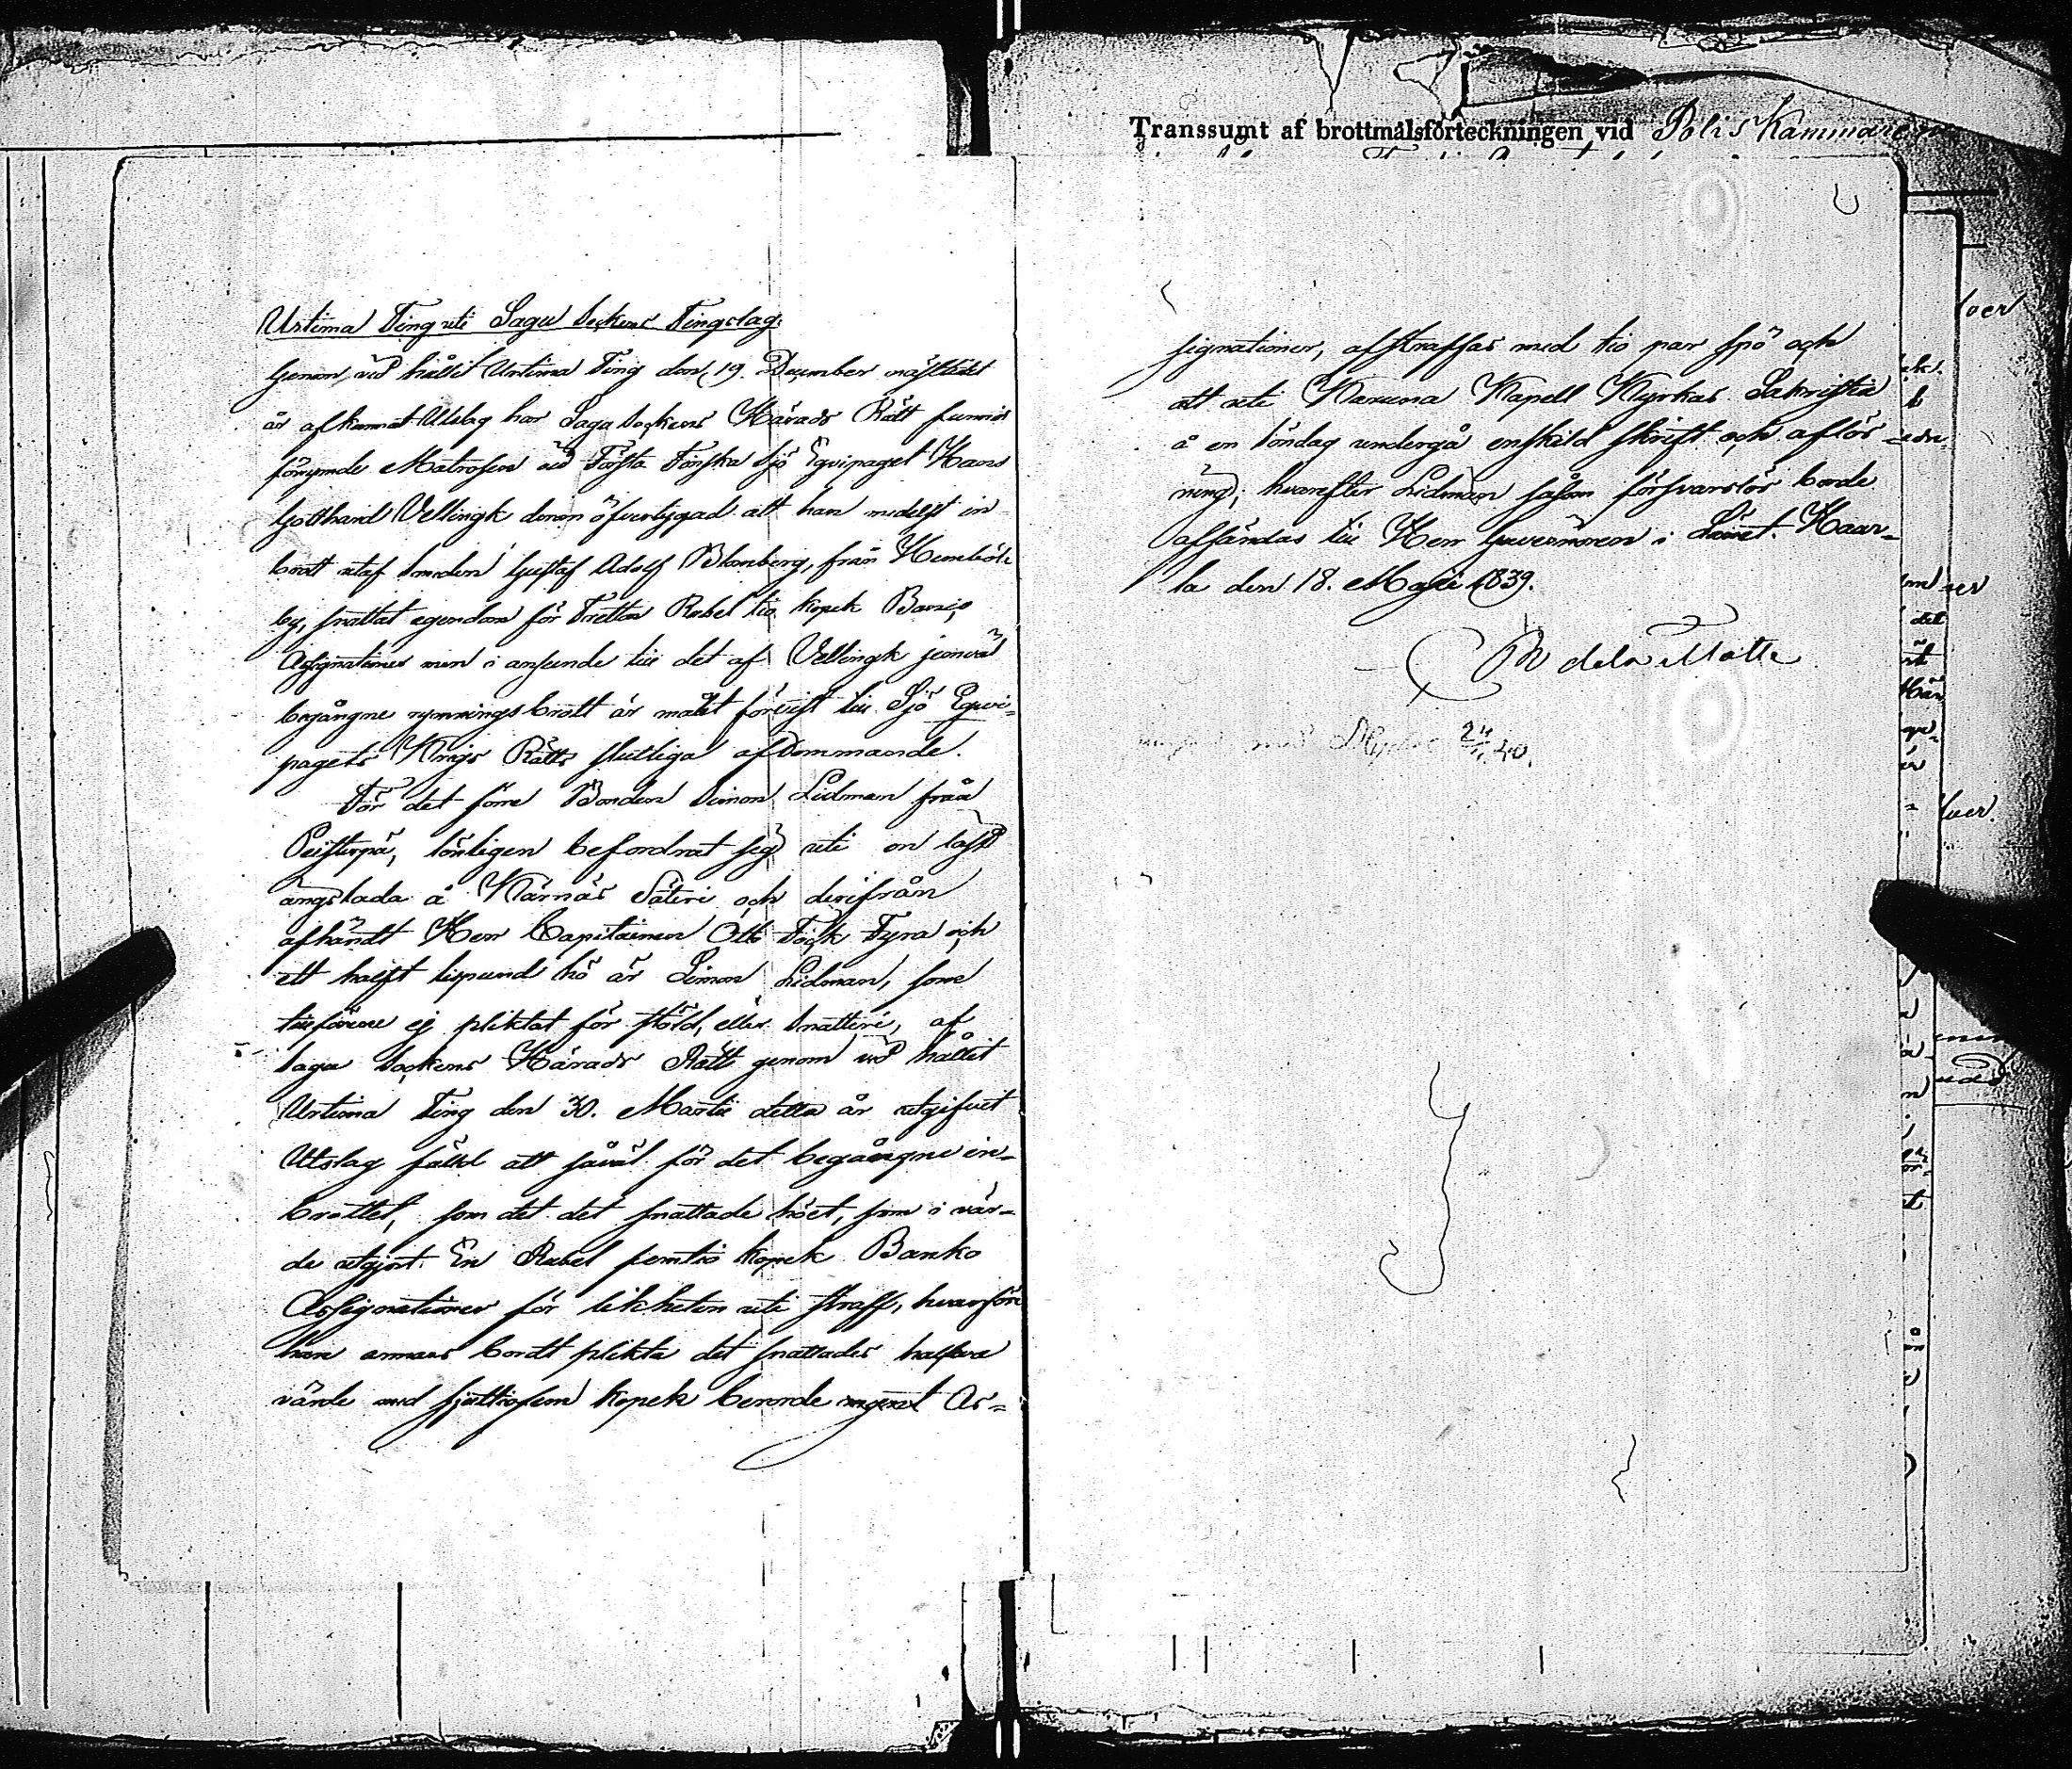 Urtima Ting uti Sagu Sockens Tingslag:
Genom, vid hållit Urtima Ting den 19. December näстlidet
år afkunnat Utslag har Sagu Sockens Härads Rätt funnit
förrymde Matrosen vid Första Finska Sjö Eqvipaget Hans
Gotthard Vellingk vara öfvertygad att han medelst in-
brott utaf Smeden Gustaf Adolf Blomberg, från
by, snattat egendom för Tretton Rubel tio kopek Banco
Assignationer men i anseende till det af Vellingk jemväl
begångne rymningsbrott är målet förvist till Sjö Eqvi-
pagets Krigs Rätts slutliga afdömmande.
För det förre Bonden Simon Lidman från
Peisterpä, lönligen befordrat sig uti en låst
ängslada å Kärnäs Säteri och derifrån
afhändt Herr Capitainen Otto Fock Fyra och
ett halft lispund hö är Simon Lidman, som
tillförene ej pliktat för stöld, eller snatteri, af
Sagu Sockens Härads Rätt genom vid hållit
Urtima Ting den 30. Martii detta år utgifvet
Utslag fälld att såväl för det begångne in-
brottet, som det det snattade höet, som i vär-
de utgjort En Rubel femtio kopek Banko
Assignationer för likheten uti straff, hvarföre
han annars bordt plikta det snattades halfva
värde med sjuttiofem kopek berörde mynt As-
Transsumt af brottmålsförteckningen vid Polis Kammaren
signationer, afstraffas med tio par spö och
att uti Karuna Kapell Kyrkas Sakristia
å en söndag undergå enskild skrift och aflös-
ning; hvarefter Lidman såsom försvarslös borde
afsändas till Herr Guvernören i Länet. Haar-
la den 18. Maji 1839.
de la Motte
med 24/11 40.